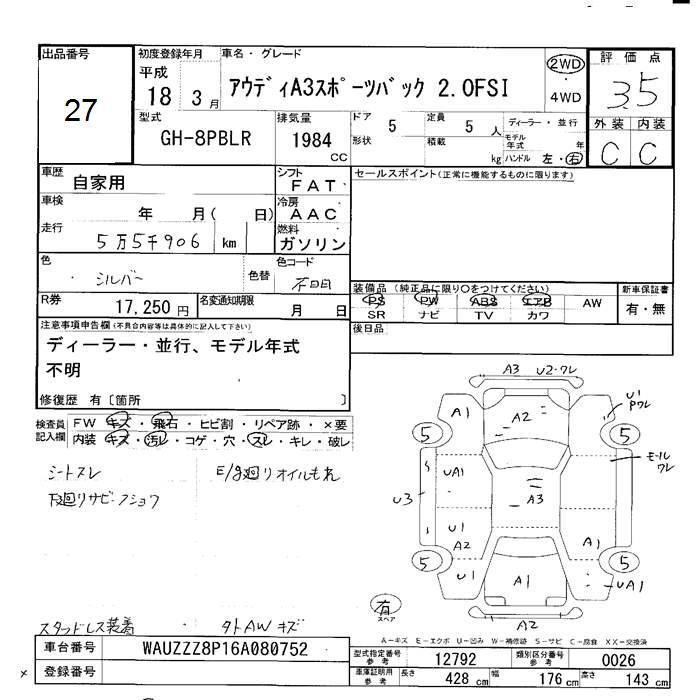 出品番号
27
初度登録年月
平成
18 3月
車名・グレード
アウディA3スポーツバック 2.0FSI
2WD
・
4WD
評価点
3.5
外装 内装
C C
型式
GH-8PBLR
排気量
1984
CC
ドア 5
形状
定員 5 人
積載 kg
ディーラー・並行
モデル年式 年
ハンドル 左・右
車歴
自家用
車検
年 月( 日)
走行
5万5千906 km
色
シルバー
色替
シフト
FAT
冷房
AAC
燃料
ガソリン
色コード
不明
R券
17,250円
名変通知期限
月 日
セールスポイント(正常に機能するものに限ります)
装備品 (純正品に限り○をつけてください)
PS PW ABS エアB AW
SR ナビ TV カワ
新車保証書
有・無
後日品
注意事項申告欄(不具合内容等は具体的に記入して下さい)
ディーラー・並行、モデル年式
不明
修復歴 有〔箇所 〕
検査員
記入欄
FW キズ・飛石・ヒビ割・リペア跡・×要
内装 キズ・汚レ・コゲ・穴・スレ・キレ・破レ
シートスレ
E/g廻りオイルもれ
下廻りサビ・フショク
スタッドレス装着
タトAWキズ
A3 U2・ワレ
A1
A2
U1
Pワレ
5
5
モールワレ
UA1
U3
A3
U1
A2
A1
5
5
U1
A1
UA1
有
スペア
A2
A-キズ E-エクボ U-凹み W-補修跡 S-サビ C-腐食 XX-交換済
車台番号
WAUZZZ8P16A080752
×
登録番号
型式指定番号
参考
12792
類別区分番号
参考
0026
車庫証明用
参考
長さ 428 cm
幅 176 cm
高さ 143 cm